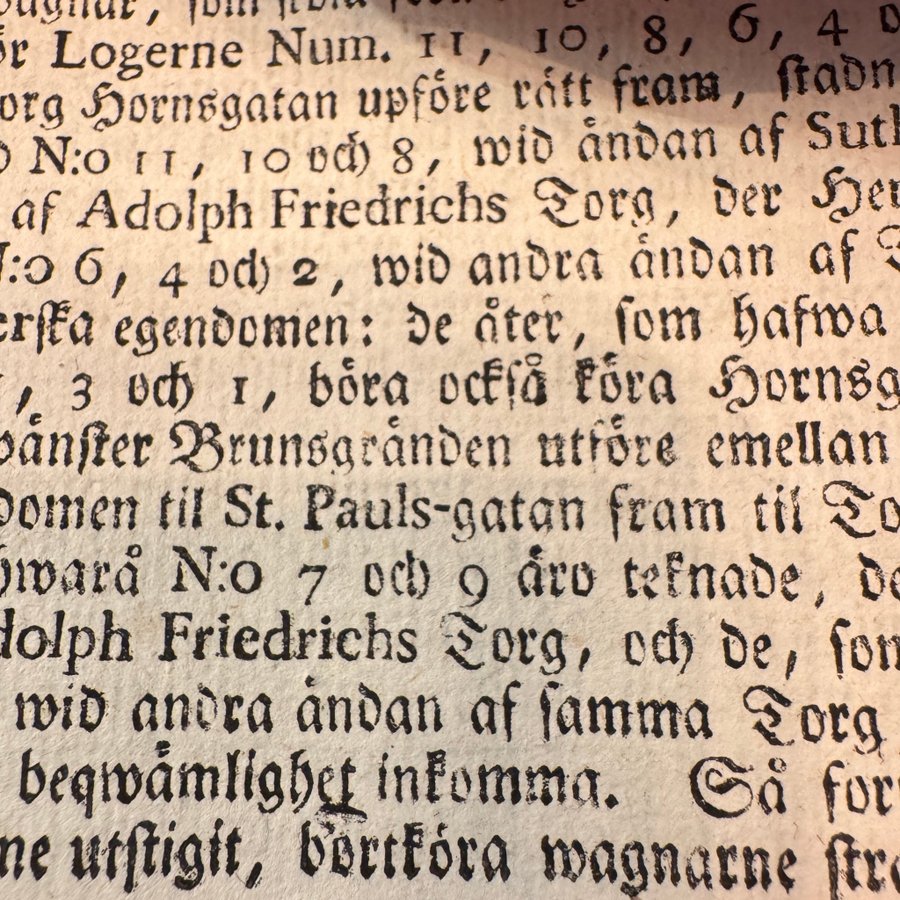 Logerne Num. 11, 10, 8, 6, 4
Hornsgatan upföre rätt fram, stadn
N:o 11, 10 och 8, wid ändan af Suth
af Adolph Friedrichs Torg, der Her
N:o 6, 4 och 2, wid andra ändan af
erska egendomen: de åter, som hafwa
, 3 och 1, böra också köra Hornsg
wänster Brunsgränden utföre emellan
domen til St. Pauls-gatan fram til To
hwarå N:o 7 och 9 äro teknade, de
dolph Friedrichs Torg, och de, som
wid andra ändan af samma Torg
beqwämlighet inkomma. Så for
ne utstigit, bortköra wagnarne stra